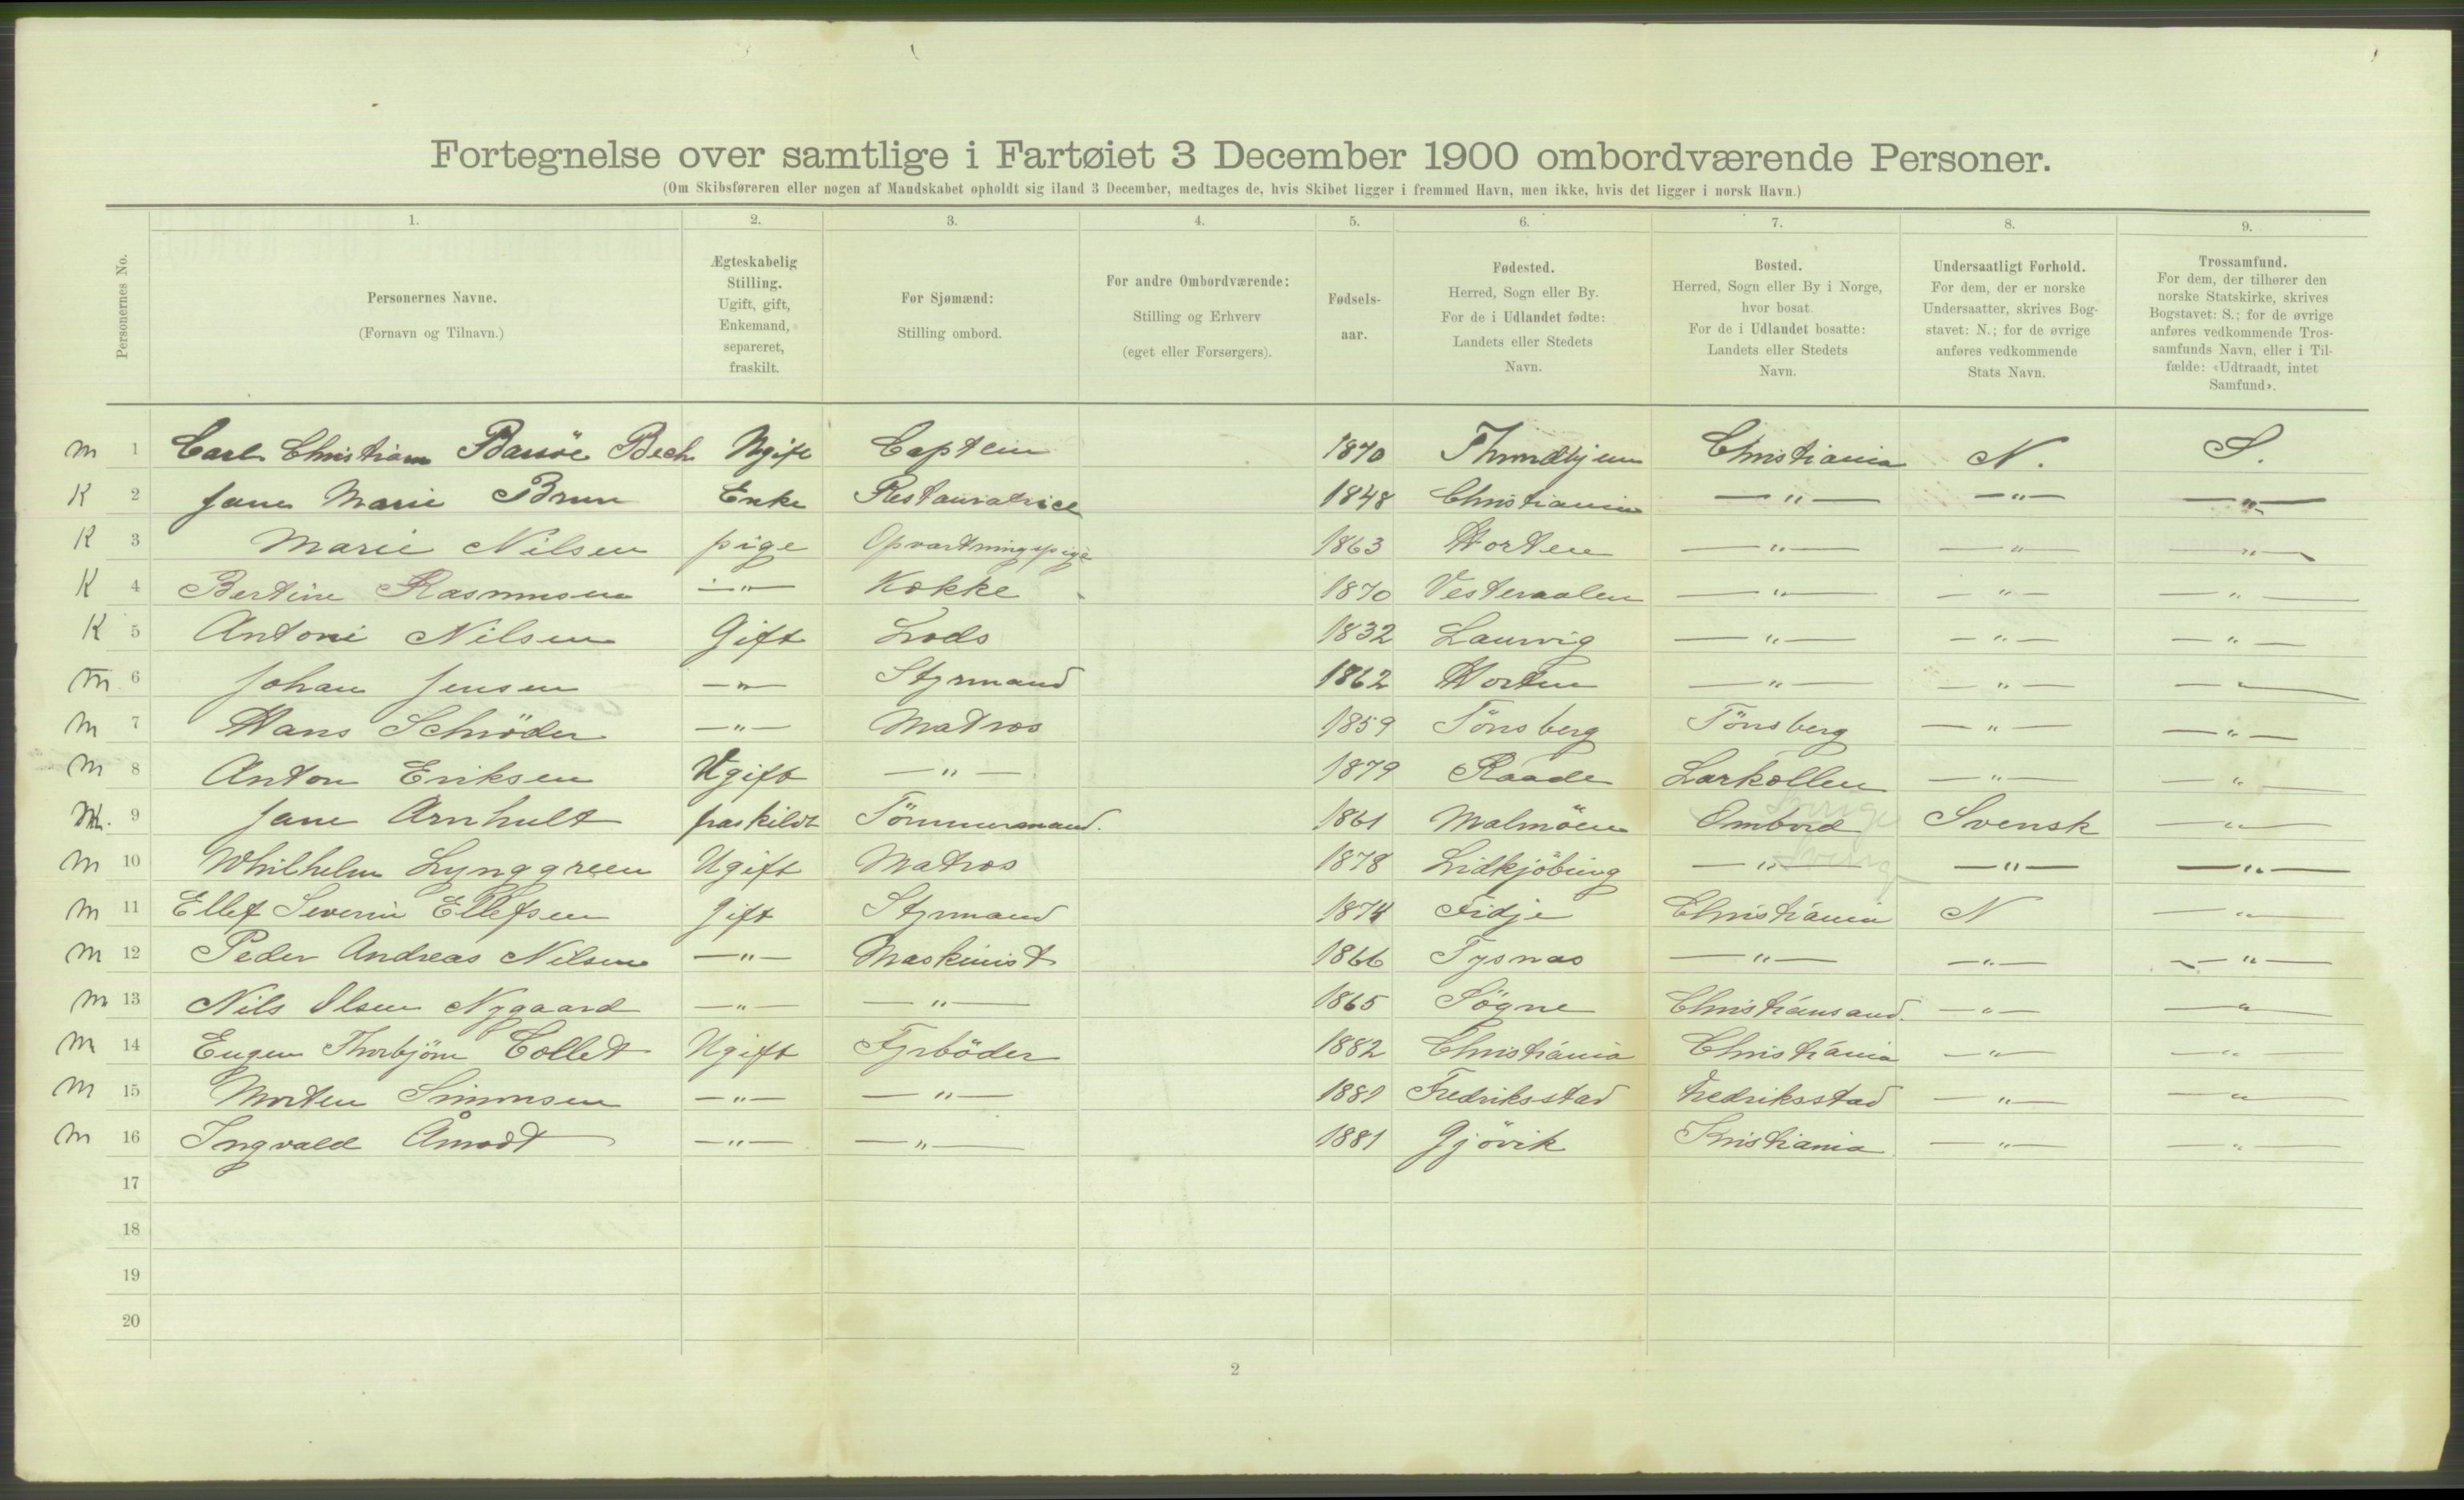 Fortegnelse over samtlige i Fartøiet 3 December 1900 ombordværende Personer.
(Om Skibsføreren eller nogen af Mandskabet opholdt sig iland 3 December, medtages de, hvis Skibet ligger i fremmed Havn, men ikke, hvis det ligger i norsk Havn.)
Personernes No.
1. 2. 3. 4. 5. 6. 7. 8. 9.
Personernes Navne.
(Fornavn og Tilnavn.)
Ægteskabelig
Stilling.
Ugift, gift,
Enkemand,
separeret,
fraskilt.
For Sjømænd:
Stilling ombord.
For andre Ombordværende:
Stilling og Erhverv
(eget eller Forsørgers).
Fødsels-
aar.
Fødested.
Herred, Sogn eller By.
For de i Udlandet fødte:
Landets eller Stedets
Navn.
Bosted.
Herred, Sogn eller By i Norge,
hvor bosat.
For de i Udlandet bosatte:
Landets eller Stedets
Navn.
Undersaatligt Forhold.
For dem, der er norske
Undersaatter, skrives Bog-
stavet: N.; for de øvrige
anføres vedkommende
Stats Navn.
Trossamfund.
For dem, der tilhører den
norske Statskirke, skrives
Bogstavet: S.; for de øvrige
anføres vedkommende Tros-
samfunds Navn, eller i Til-
fælde: «Udtraadt, intet
Samfund».
m 1 Carl Christian Barsöe Bech Ugift Captein 1870 Christiania N. S.
K 2 Jane Marie Brun Enke Restauratrice 1848 Christiania —"— —"— —"—
K 3 Marie Nilsen pige Opvartningspige 1863 Horten —"— —"— —"—
K 4 Bertine Rasmusen —"— Kokke 1870 Vesteraalen —"— —"— —"—
K 5 Antoni Nilsen Gift Lods 1832 Laurvig —"— —"— —"—
m 6 Johan Jensen —"— Styrmand 1862 Horten —"— —"— —"—
m 7 Hans Schröder —"— Matros 1859 Tönsberg Tönsberg —"— —"—
m 8 Anton Eriksen Ugift —"— 1879 Raade Larkollen —"— —"—
9 Jane Arnhult fraskildt Tömmermand. 1861 Malmöen Ombord Sverige Svensk —"—
m 10 Whilhelm Lynggreen Ugift Matros 1878 Lidkjöbing —"— Sverig —"— —"—
m 11 Ellef Severin Ellefsen gift Styrmand 1874 Fidje Christiania N —"—
m 12 Peder Andreas Nilsen —"— Maskinist 1866 Tysnas —"— —"— —"—
m 13 Nils Olsen Nygaard —"— —"— 1865 Sögne Christiansand. —"— —"—
m 14 Eugen Thorbjörn Collet Ugift Fyrböder 1882 Christiania Christiania —"— —"—
m 15 Morten Simonsen —"— —"— 1881 Fredriksstad Fredriksstad —"— —"—
m 16 Ingvald Åmodt —"— —"— 1881 Gjövik Kristiania —"— —"—
17
18
19
20
2